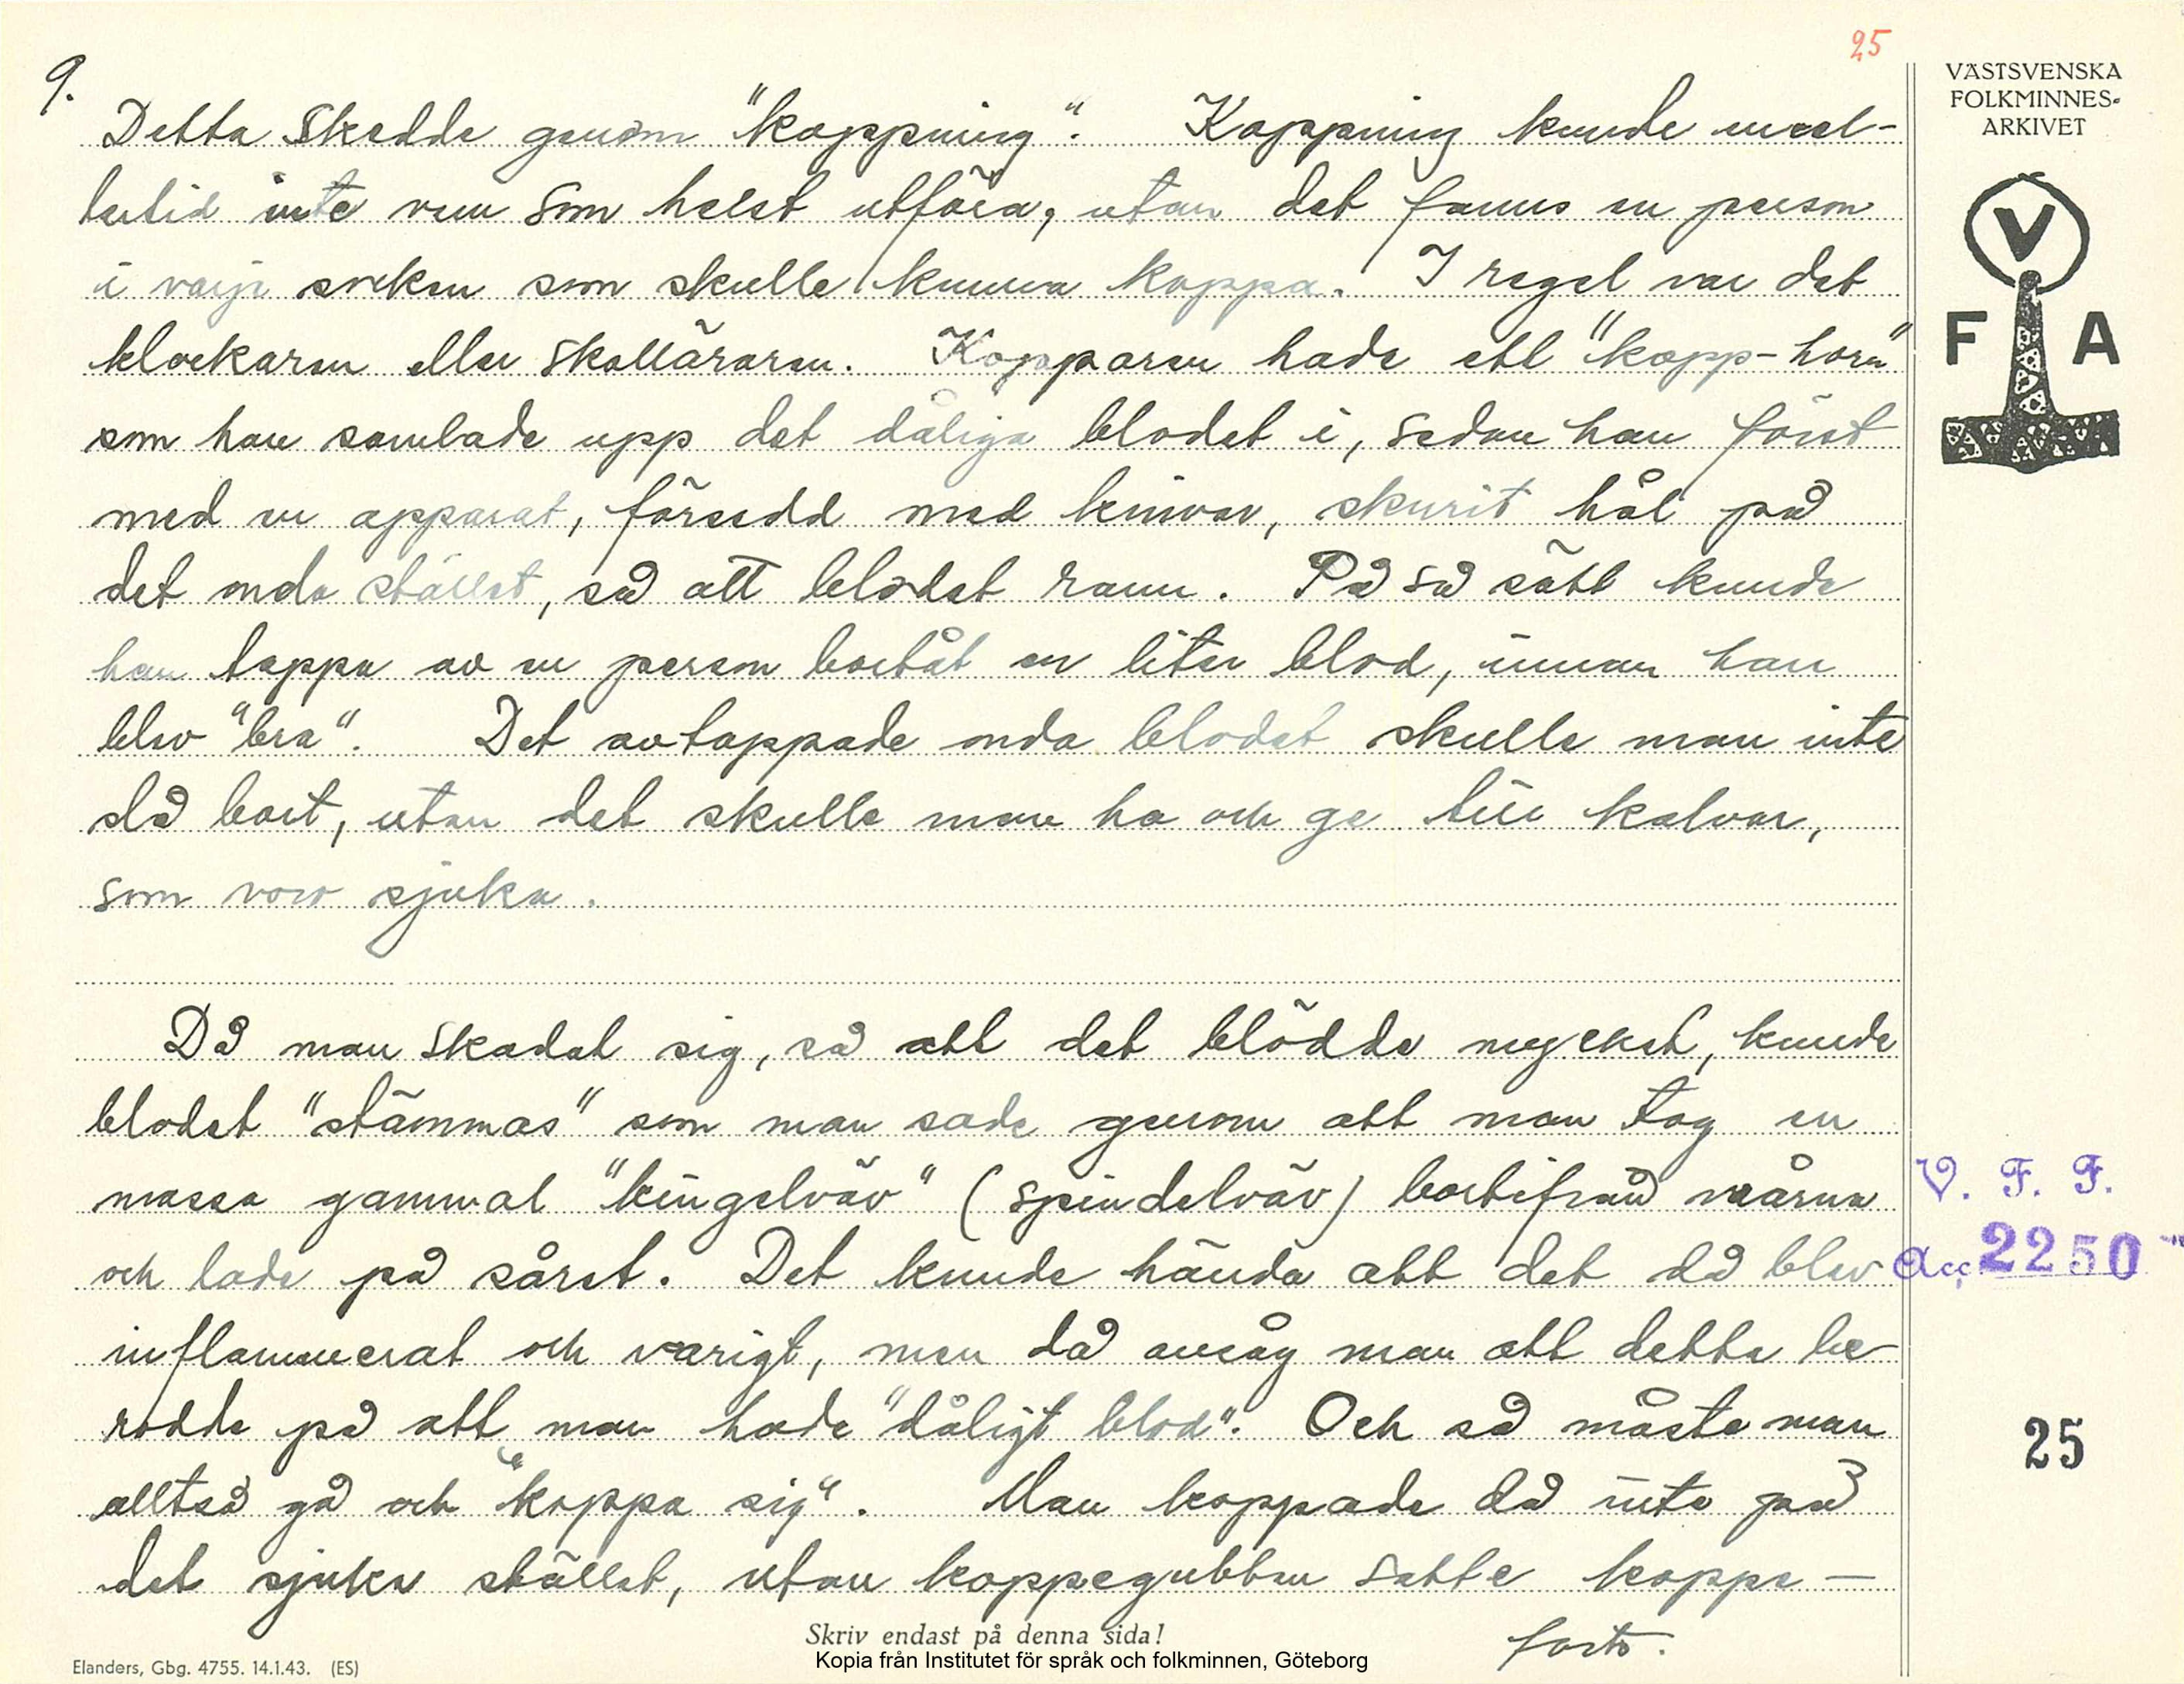 25
9.
Detta skedde genom "koppning". Koppning kunde emel-
lertid inte vem som helst utföra, utan det fanns en person
i varje socken som skulle kunna koppa. I regel var det
klockaren eller skolläraren. Kopparen hade ett "kopp-horn"
som han samlade upp det dåliga blodet i, sedan han först
med en apparat, försedd med knivar, skurit hål på
det onda stället, så att blodet rann. På så sätt kunde
han tappa av en person bortåt en liter blod, innan han
blev "bra". Det avtappade onda blodet skulle man inte
slå bort, utan det skulle man ha och ge till kalvar,
som voro sjuka.
Då man skadat sig, så att det blödde mycket, kunde
blodet "stämmas" som man sade genom att man tog en
massa gammal "kingelväv" (spindelväv) bortifrån
och lade på såret. Det kunde hända att det då blev
inflammerat och varigt, men då ansåg man att detta be-
rodde på att man hade "dåligt blod". Och så måste man
alltså gå och "koppa sig". Man koppade då inte på
det sjuka stället, utan koppegubben satte koppe-
forts.
Skriv endast på denna sida!
Kopia från Institutet för språk och folkminnen, Göteborg
Elanders, Gbg. 4755. 14.1.43. (ES)
VÄSTSVENSKA
FOLKMINNES-
ARKIVET
V
F A
V. F. F.
Acc. 2250
25